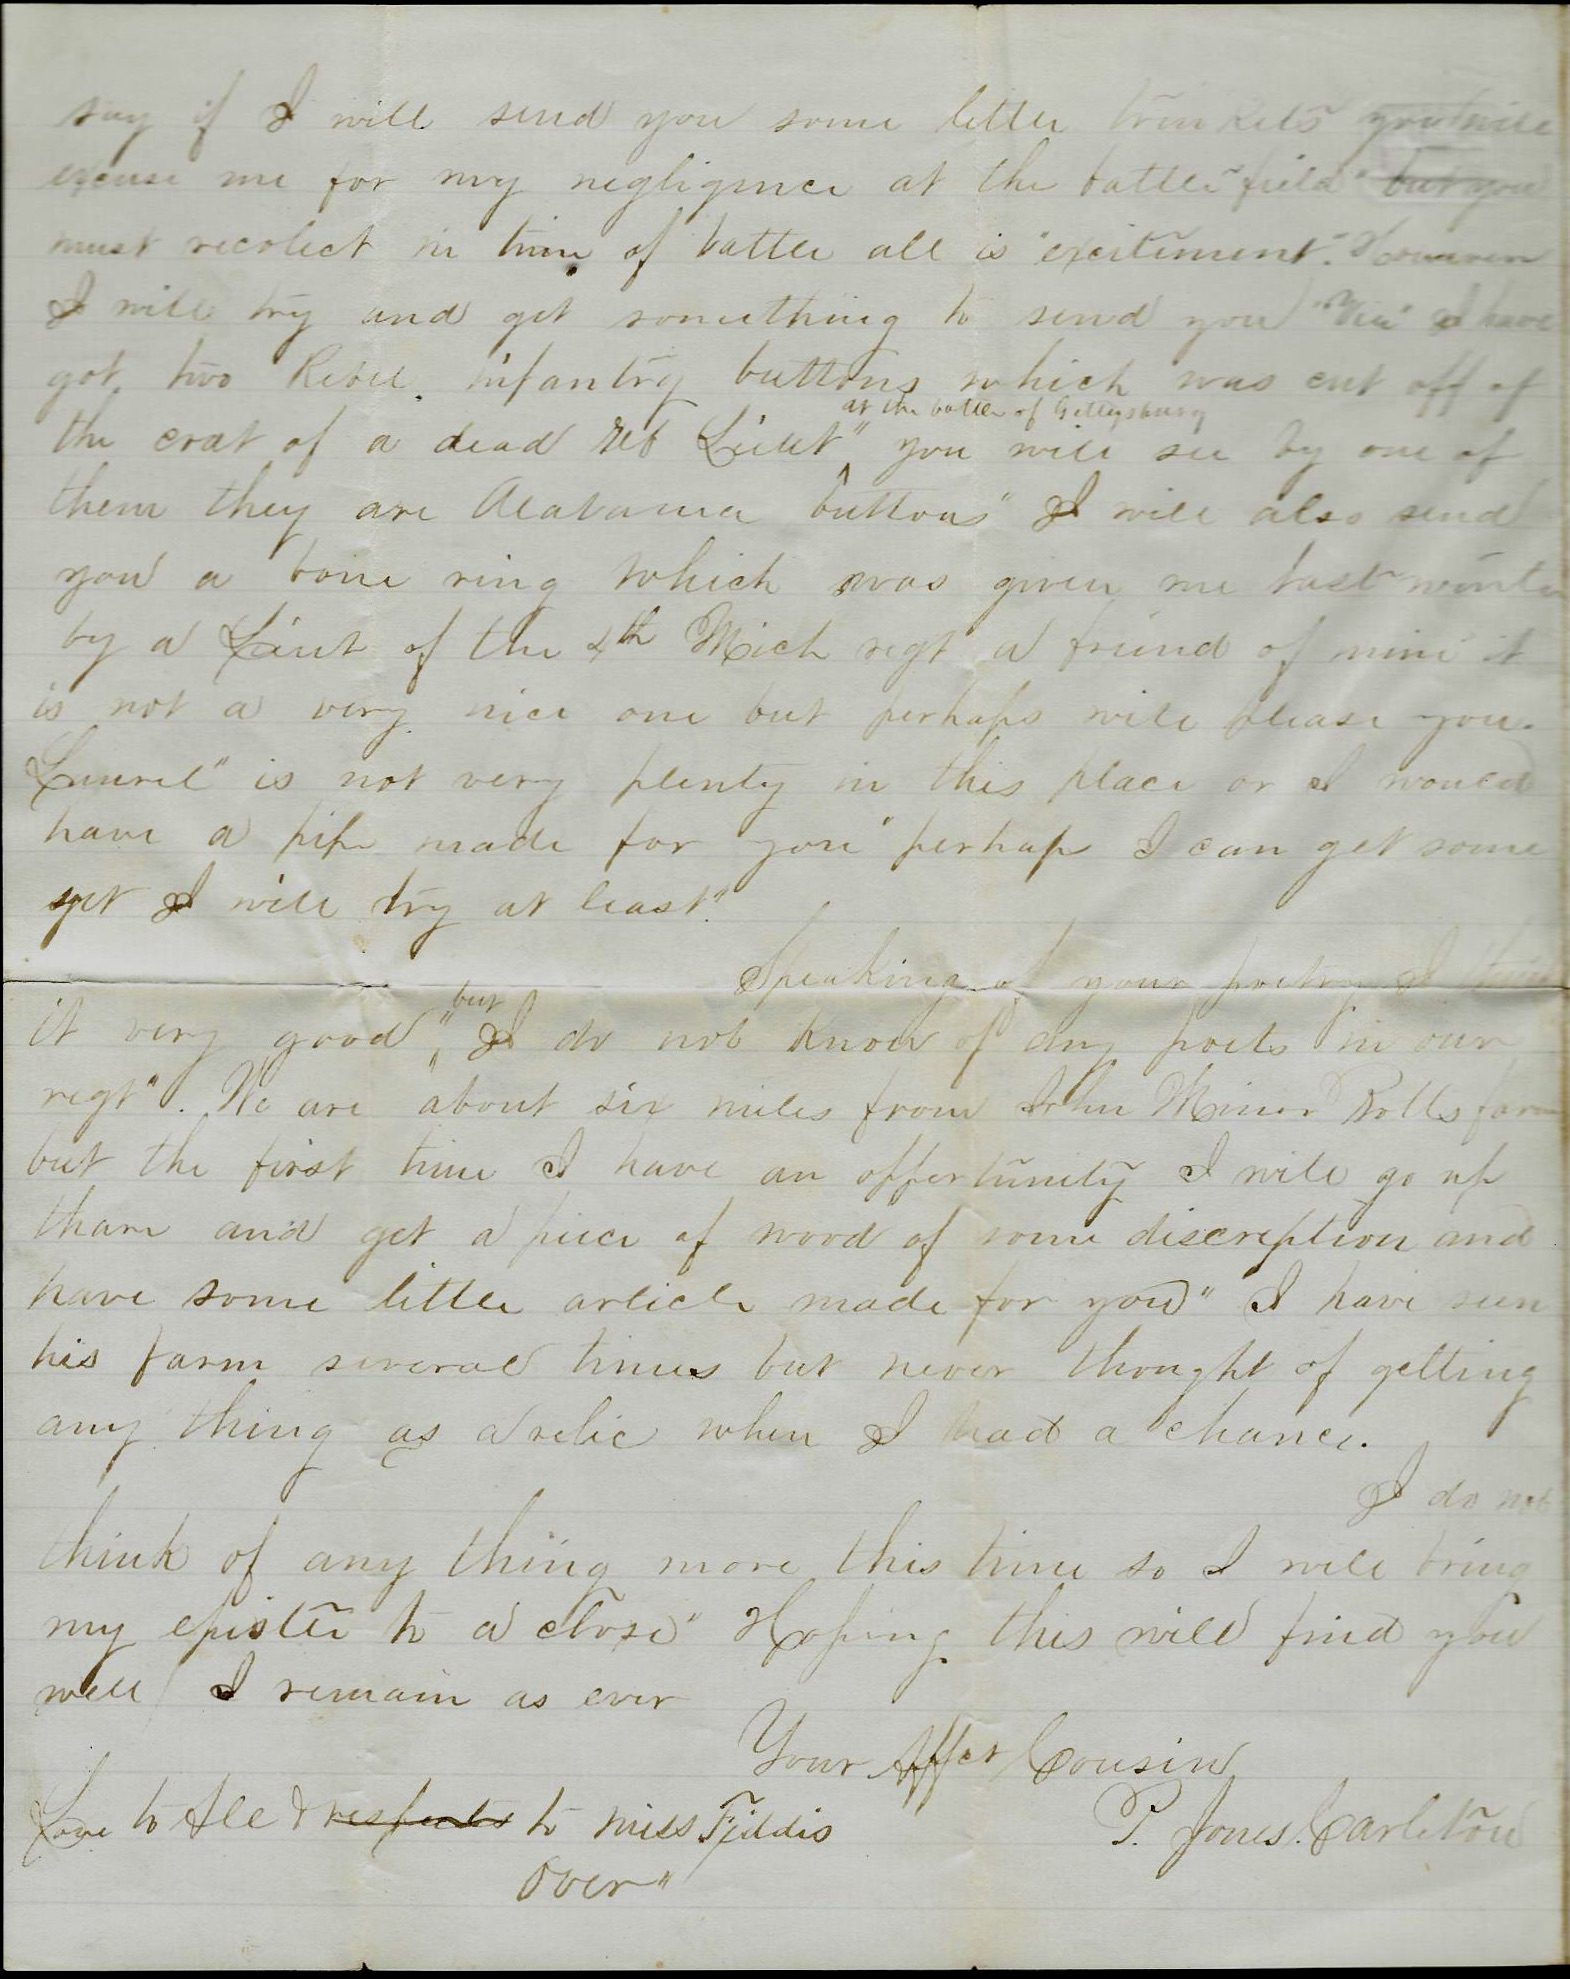 say if I will send you some little trinkets you will
excuse me for my negligence at the battle field" but you
must recolect in time of battle all is "excitement". However
I will try and get something to send you I have
got two Rebel infantry buttons which was cut off of
at the battle of Gettysburg
the coat of a dead reb Lieut" you will see by one of
them they are Alabama buttons" I will also send
you a bone ring which was given me last winter
by a Lieut of the 4th Mich regt a friend of mine it
is not a very nice one but perhaps will please you.
Laurel" is not very plenty in this place or I would
have a pipe made for you" perhaps I can get some
yet I will try at least".
Speaking of your poetry I think
but
it very good", I do not know of any poets in our
regt". We are about six miles from John Minor Botts farm
but the first time I have an oppertunity I will go up
thare and get a piece of wood of some discreption and
have some little article made for you" I have seen
his farm several times but never thought of getting
any thing as a relic when I had a chance.
I do not
think of any thing more this time so I will bring
my epistle to a close" Hoping this will find you
well I remain as ever
Your Affct Cousin
Love to All & respects to miss Fiddis
P. Jones Carleton
Over"